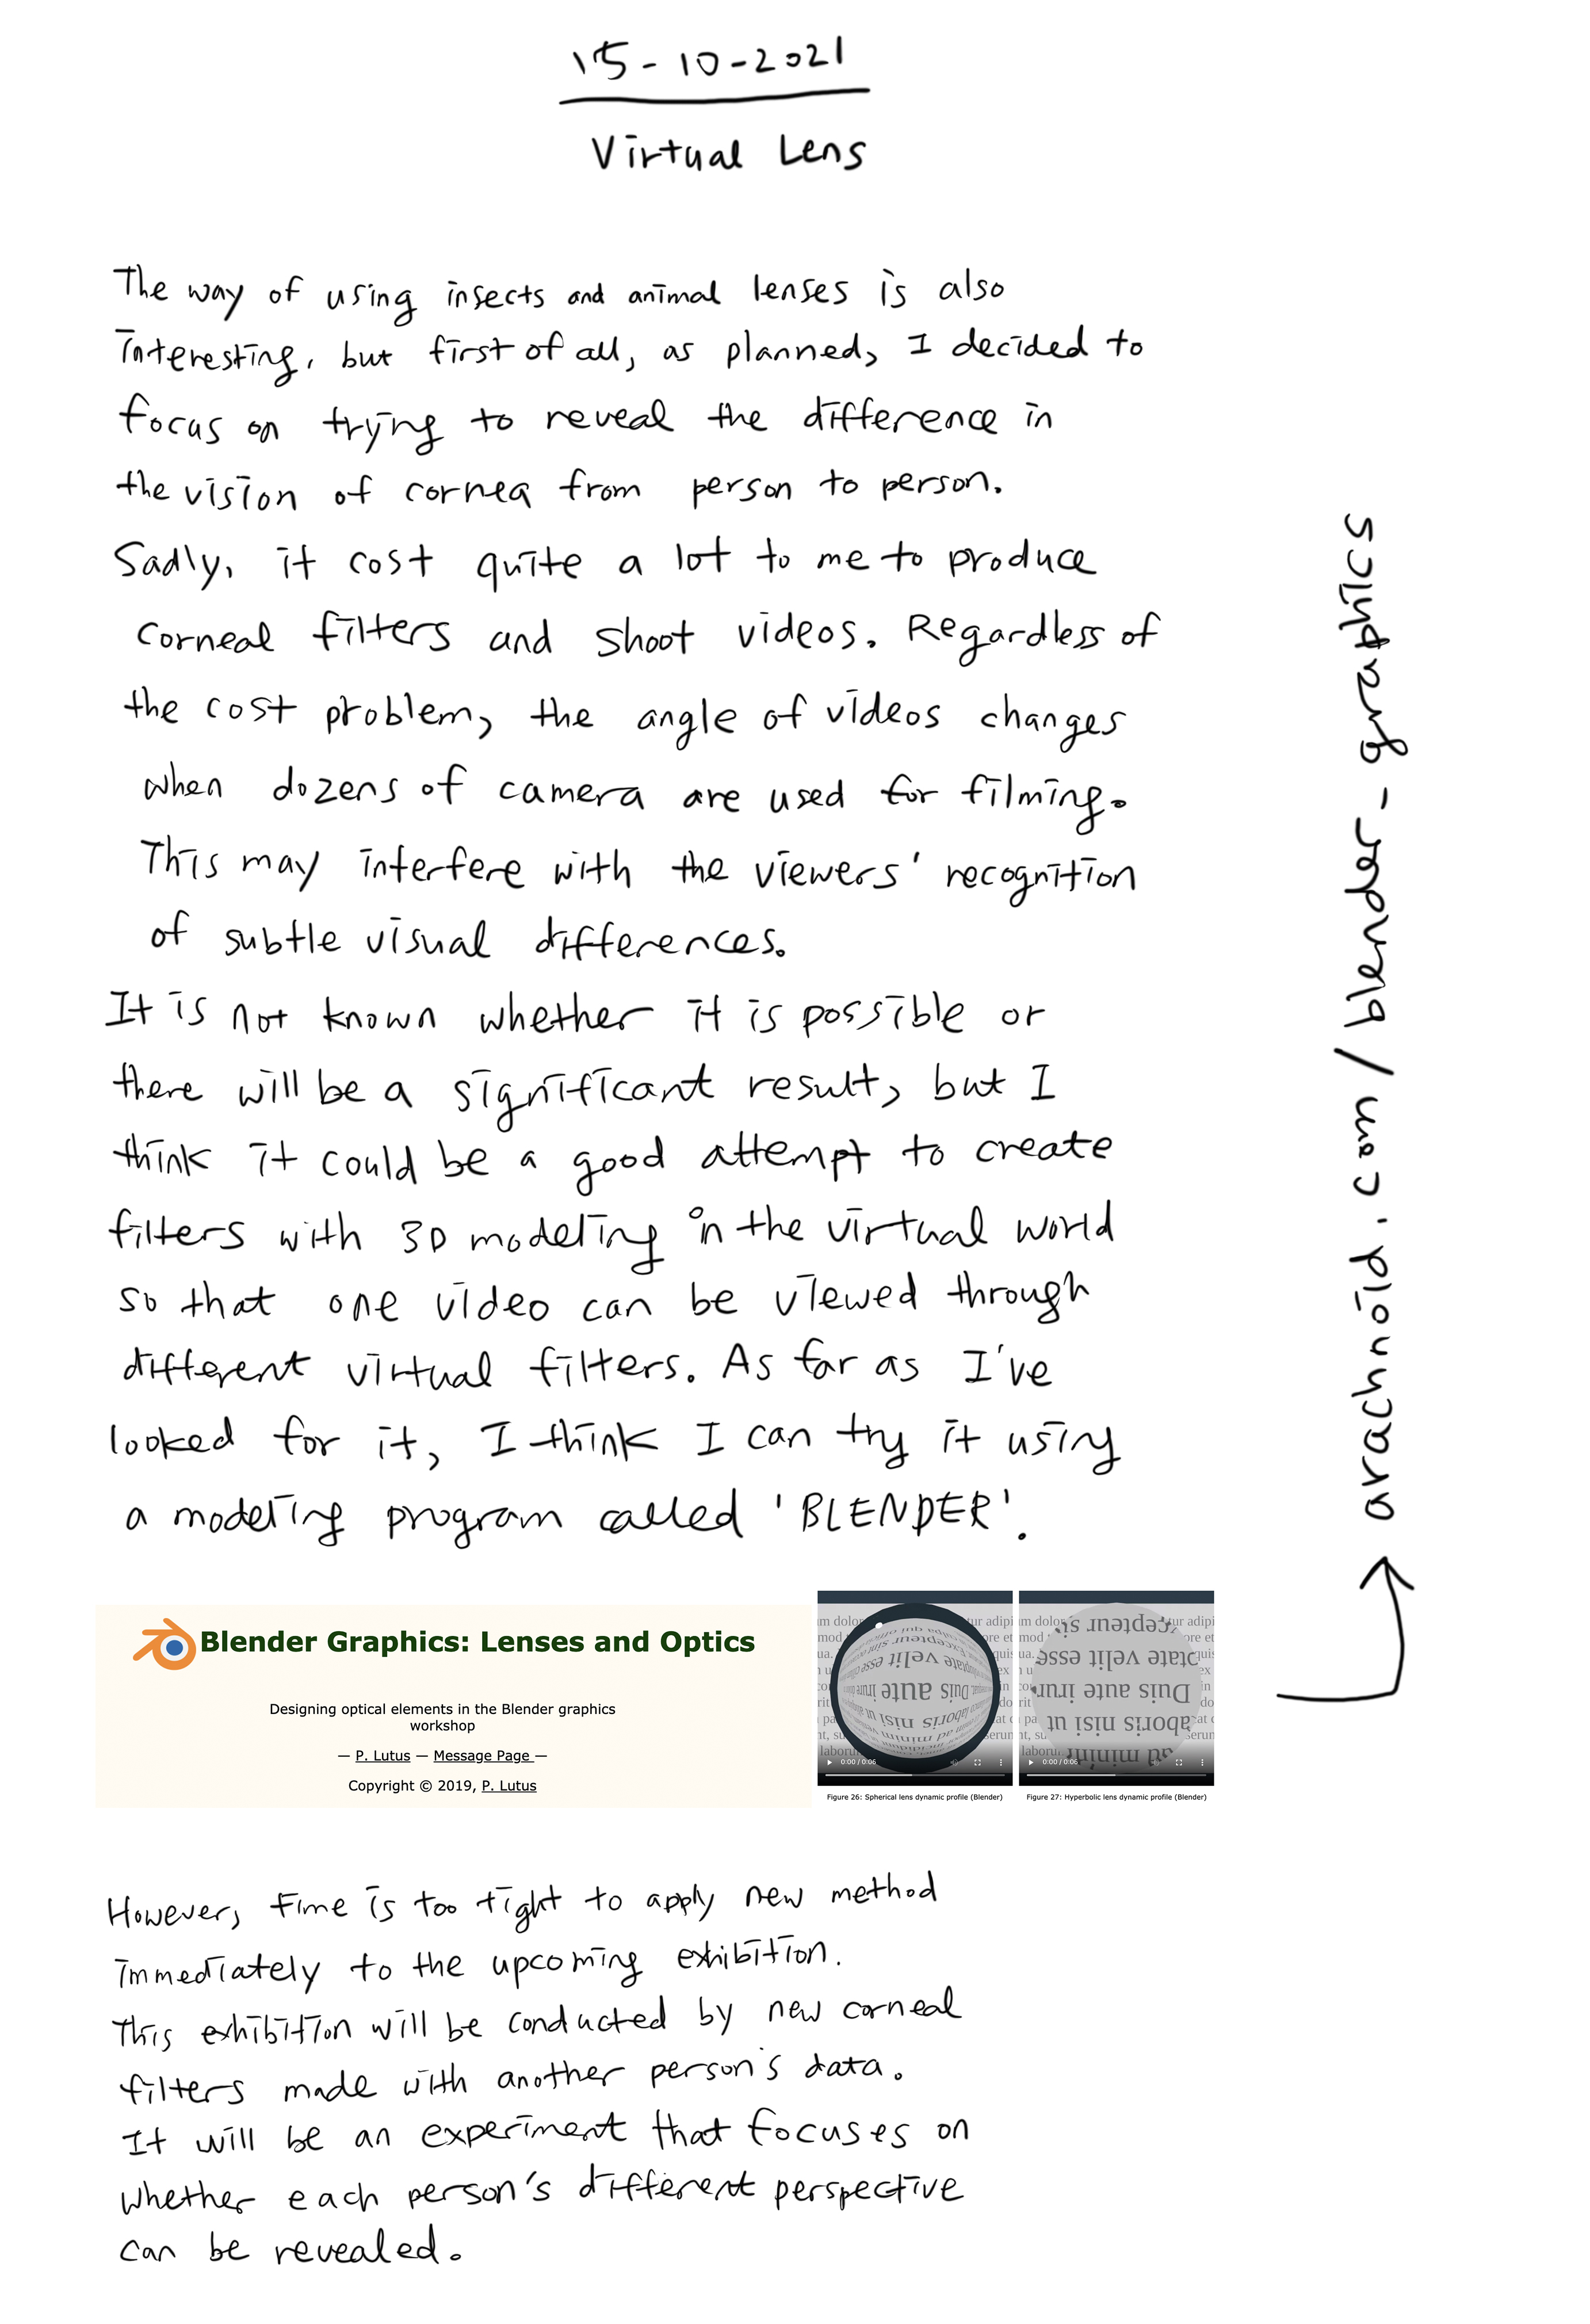 15-10-2021
Virtual Lens
The way of using insects and animal lenses is also
interesting, but first of all, as planned, I decided to
focus on trying to reveal the difference in
the vision of cornea from person to person.
Sadly, it cost quite a lot to me to produce
corneal filters and shoot videos. Regardless of
the cost problem, the angle of videos changes
when dozens of camera are used for filming.
This may interfere with the viewers' recognition
of subtle visual differences.
It is not known whether it is possible or
there will be a significant result, but I
think it could be a good attempt to create
filters with 3D modeling in the virtual world
so that one video can be viewed through
different virtual filters. As far as I've
looked for it, I think I can try it using
a modeling program called 'BLENDER'.
Blender Graphics: Lenses and Optics
Designing optical elements in the Blender graphics
workshop
— P. Lutus — Message Page —
Copyright © 2019, P. Lutus
Duis aute irure
0:00 / 0:06
Figure 26: Spherical lens dynamic profile (Blender)
cepteur si
ptate velit esse
Duis aute irur
laboris nisi ut
ad minim
0:00 / 0:06
Figure 27: Hyperbolic lens dynamic profile (Blender)
→ arachnoid.com/blender_graphics
However, time is too tight to apply new method
immediately to the upcoming exhibition.
This exhibition will be conducted by new corneal
filters made with another person's data.
It will be an experiment that focuses on
whether each person's different perspective
can be revealed.